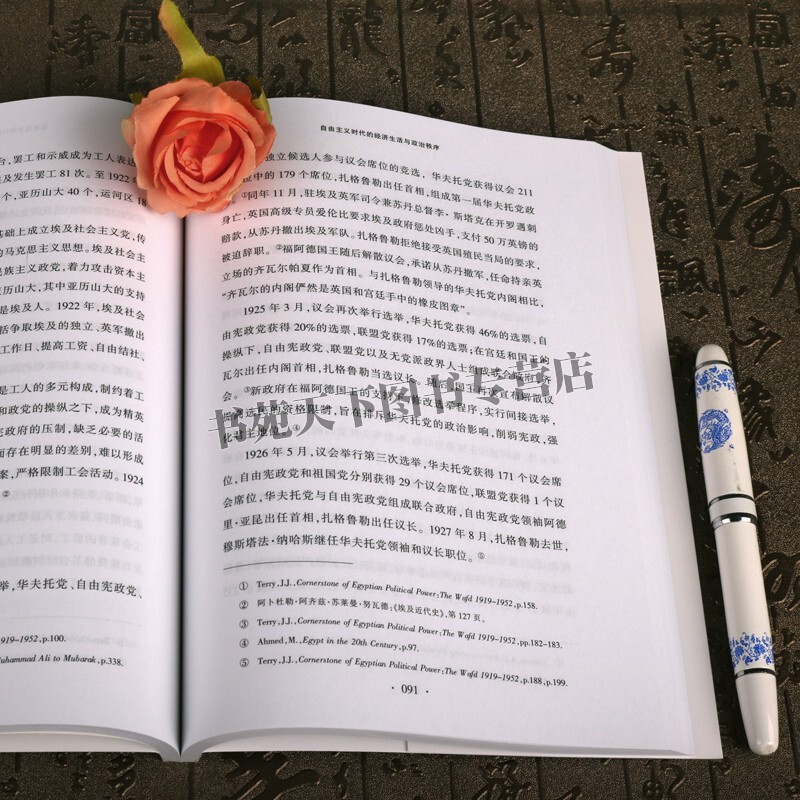 台，罢工和示威成为工人表达
及发生罢工81次。至1922年
个，亚历山大40个，运河区18
基础上成立埃及社会主义党，传
的马克思主义思想。埃及社会主
民族主义政党，着力攻击资本主
亚历山大，其中亚历山大的支持
是埃及人。1922年，
括争取埃及的独立、英军撤出
工作日、提高工资、自由结社、
是工人的多元构成，制约着工
和政党的操纵之下，成为精英
宪政府的压制，缺乏必要的活
而存在明显的差别，难以形成
案，严格限制工会活动。1924
②
举，华夫托党、自由宪政党、
1919-1952,p.100.
Muhammad Ali to Mubarak,p.338.
自由主义时代的经济生活与政治秩序
独立候选人参与议会席位的竞选，华夫托党获得议会211
位中的179个席位，扎格鲁勒出任首相，组成第一届华夫托党政
①同年11月，驻埃及英军司令兼苏丹总督李·斯塔克在开罗遇刺
身亡，英国高级专员爱伦比要求埃及政府惩处凶手，支付50万英镑的
赔款，从苏丹撤出埃及军队。扎格鲁勒拒绝接受英国殖民当局的要求，
被迫辞职。②福阿德国王随后解散议会，承诺从苏丹撤军，任命持亲英
立场的齐瓦尔帕夏作为首相。与扎格鲁勒领导的华夫托党内阁相比，
“齐瓦尔的内阁俨然是英国和宫廷手中的橡皮图章”。
1925年3月，议会再次举行选举，华夫托党获得46%的选票，自
由宪政党获得20%的选票，联盟党获得17%的选票；在宫廷和国王的
操纵下，自由宪政党、联盟党以及无党派政界人士组成联合政府，齐
瓦尔出任内阁首相，扎格鲁勒当选议长。随后国王再次宣布解散议
会。③新政府在福阿德国王的支持下修改选举程序，实行间接选举，
提高选民的资格限制，旨在排斥华夫托党的政治影响，削弱宪政，强
化君主地位。④
1926年5月，议会举行第三次选举，华夫托党获得171个议会席
位，自由宪政党和祖国党分别获得29个议会席位，联盟党获得1个议
会席位，华夫托党与自由宪政党组成联合政府，自由宪政党领袖阿德
里·亚昆出任首相，扎格鲁勒出任议长。1927年8月，扎格鲁勒去世，
穆斯塔法·纳哈斯继任华夫托党领袖和议长职位。⑤
① Terry,J.J.,Cornerstone of Egyptian Political Power:The Wafd 1919-1952,p.158.
② 阿卜杜勒·阿齐兹·苏莱曼·努瓦德：《埃及近代史》，第127页。
③ Terry,J.J.,Cornerstone of Egyptian Political Power:The Wafd 1919-1952,pp.182-183.
④ Ahmed,M.,Egypt in the 20th Century,p.97.
⑤ Terry,J.J.,Cornerstone of Egyptian Political Power:The Wafd 1919-1952,p.188,p.199.
·091·
书苑天下图书专营店